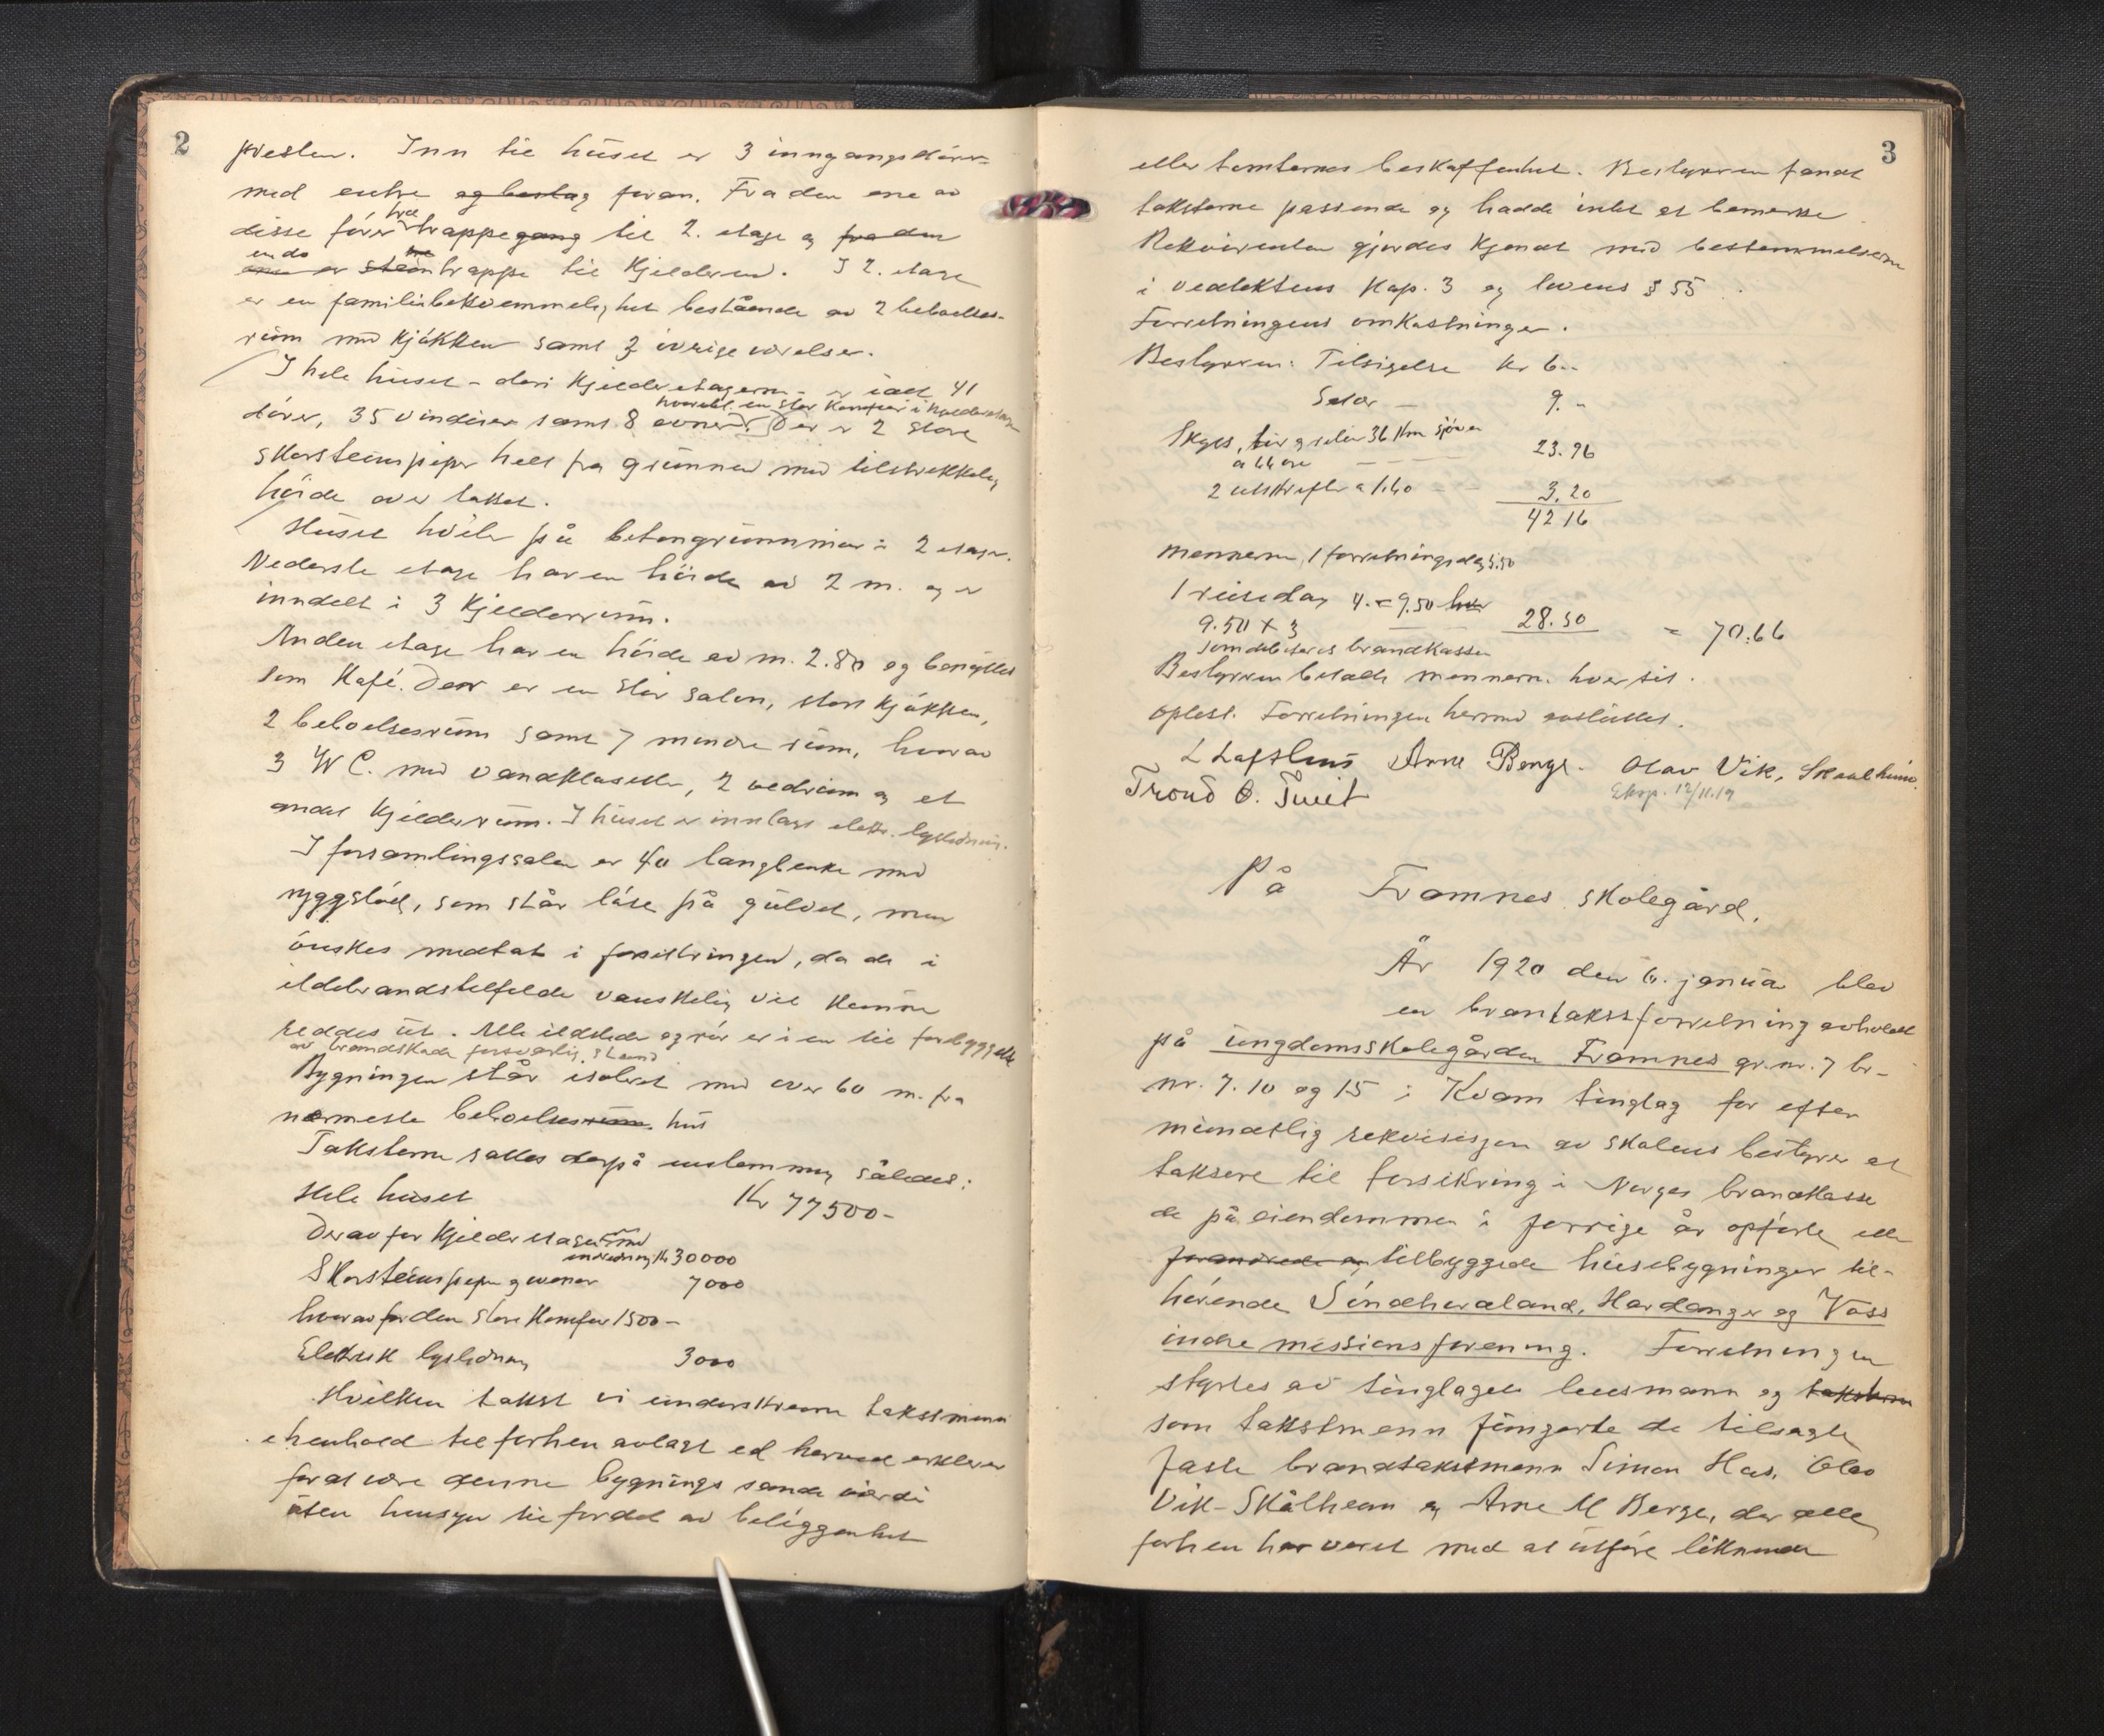 2
presten. Inn til huset er 3 inngangsdører
med entre og beslag foran. Fra den ene av
disse fører tre trappegang til 2. etage og fra den
endo
ene er stein tre trappe til kjelderen. I 2. etage
er en familiebekvemmelighet bestående av 2 beboelses-
rum med kjøkken samt 3 øvrige værelser.
I hele huset - deri kjelderetagerne - er ialt 41
hvoriblt. en stor komfur i kjelderetagen
dører, 35 vinduer samt 8 ovner. Der er 2 store
skorsteinspiper helt fra grunnen med tilstrekkelig
høide over taket.
Huset hviler på betongrunnmur i 2 etager.
Nederste etage har en høide av 2 m. og er
inndelt i 3 kjelderrum.
Anden etage har en høide av m. 2.80 og benyttes
som Kafé. Der er en stor salon, stort kjøkken,
2 beboelsesrum samt 7 mindre rum, hvorav
3 W C. med vandklosetter, 2 vedrum og et
andet kjelderrum. I huset er innlagt elektr. lysledning.
I forsamlingssalen er 40 langbenke med
ryggstød, som står løse på gulvet, men
ønskes medtat i forsikringen, da de i
ildebrandstilfelde vanskelig vil kunne
reddes ut. Alle ildsteder og rør er i en til forebyggelse
av brandskade forsvarlig stand
Bygningen står isoleret med over 60 m. fra
nærmeste beboelsesrum hus
Taksterne sattes derpå enstemmig således:
Hele huset Kr 77500-
Derav for kjelderetagerne med
innredning kr 30000
Skorsteinspiper og ovner 7000
hvorav for den store Komfur 1500-
Elektrisk lysledning 3000
Hvilken takst vi underskrevne takstmenn
i henhold til forhen avlagt ed herved erklærer
for at være denne bygnings sande værdi
uten hensyn til fordel av beliggenhet
3
eller tomternes beskaffenhet. Bestyreren fandt
taksterne passende og hadde intet at bemerke.
Rekvirenten gjordes kjendt med bestemmelserne
i vedtektens Kap. 3 og lovens § 55.
Forretningens omkostninger.
Bestyreren: Tilsigelse kr 6 --
Salær — 9. -
Skyss, tur og retur 36 km sjøvei
a 66 øre — — — 23.76
2 utskrifter a 1.60 - - 3.20
42 16
Mennerne, 1 forretningsdag 5.50
1 reisedag 4. = 9.50 hver
9.50 x 3 28.50 = 70.66
som debiteres brandkassen
Bestyreren betalte mennerne hver sit.
Oplest. Forretningen hermed avsluttet.
L Lofthus Arne Berge. Olav Vik, Skaalheim.
Trond O. Tveit Eksp. 12/11.19
På Framnes skolegård.
År 1920 den 6. januar blev
en brantakstforretning avholdt
på ungdomsskolegården Framnes gr.nr. 7 br-
nr. 7. 10 og 15 i Kvam tinglag for efter
mundtlig rekvisisjon av skolens bestyrer at
taksere til forsikring i Norges brandkasse
de på eiendommen i forrige år opførte eller
forandrede og tilbyggede husebygninger til-
hørende Søndhordland, Hardanger og Voss
indre missionsforening. Forretningen
styrtes av tinglagets lensmann og takstm
som takstmenn fungerte de tilsagte
faste brandtakstmenn Simon Hus, Olav
Vik-Skålheim og Arne M Berge, der alle
forhen har været med at utføre liknende